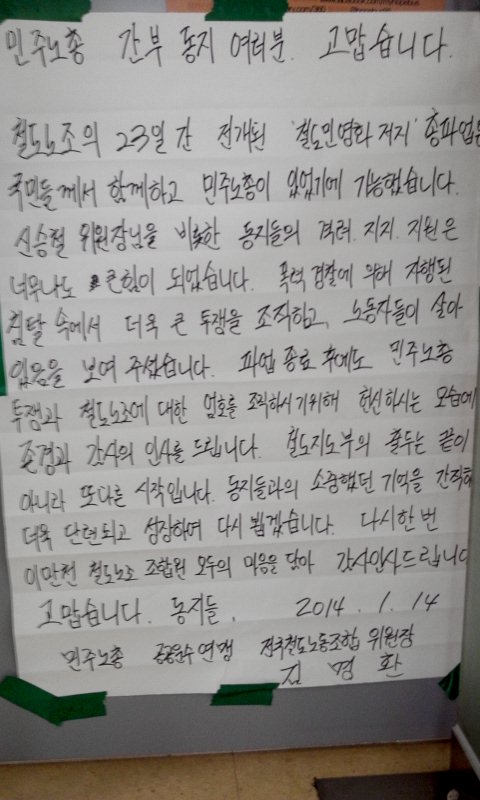 www.facebook.com/myhopebus
민주노총 간부 동지 여러분. 고맙습니다.
철도노조의 23일간 전개된 '철도민영화 저지' 총파업은
국민들께서 함께하고 민주노총이 있었기에 가능했습니다.
신승철 위원장님을 비롯한 동지들의 격려. 지지. 지원은
너무나도 큰힘이 되었습니다. 폭력 경찰에 의해 자행된
침탈 속에서 더욱 큰 투쟁을 조직하고, 노동자들이 살아
있음을 보여 주셨습니다. 파업 종료 후에도 민주노총
투쟁과 철도노조에 대한 엄호를 조직하시기위해 헌신하시는 모습에
존경과 감사의 인사를 드립니다. 철도지도부의 출두는 끝이
아니라 또다른 시작입니다. 동지들과의 소중했던 기억을 간직하
더욱 단련되고 성장하여 다시 뵙겠습니다. 다시한번
이만천 철도노조 조합원 모두의 마음을 담아 감사인사드립니다
고맙습니다. 동지들. 2014. 1. 14
민주노총 공공운수연맹 전국철도노동조합 위원장
김 명 환